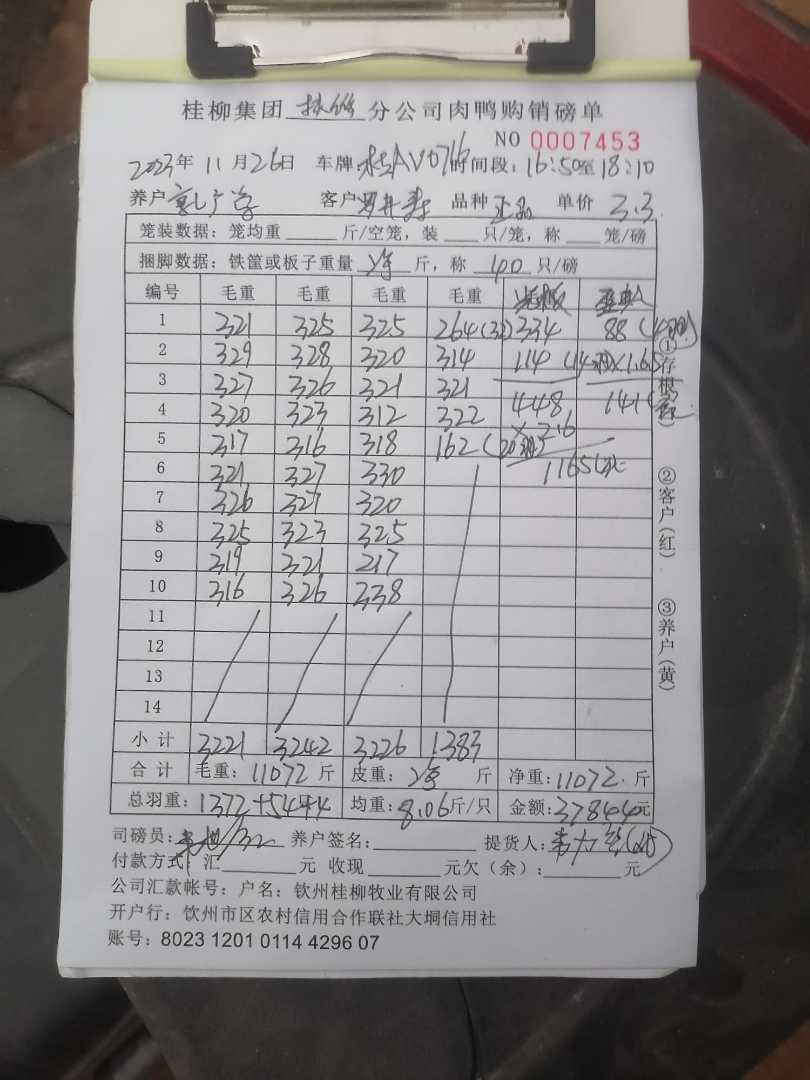 桂柳集团 分公司肉鸭购销磅单
NO 0007453
2023年 11月26日 车牌:桂AV0716 时间段:16:50至18:10
养户 客户 品种 正品 单价 3.3
笼装数据:笼均重 斤/空笼,装 只/笼,称 笼/磅
捆脚数据:铁筐或板子重量 净 斤,称 40 只/磅
编号 毛重 毛重 毛重 毛重
1 321 325 325 264(32) 334 88
2 329 328 320 314 114 ×1.6
3 327 326 321 321 448 141
4 320 323 312 322 ×2.6
5 317 316 318 162(20 1165
6 321 327 330
7 326 327 320
8 325 323 325
9 319 321 217
10 316 326 338
11
12
13
14
小计 3221 3242 3226 1383
合计 毛重:11072斤 皮重:净 斤 净重:11072.斤
总羽重:1372+54 均重:8.06斤/只 金额:37844元
①存根
②客户(红)
③养户(黄)
司磅员: 养户签名: 提货人:
付款方式:汇 元 收现 元欠(余): 元
公司汇款帐号:户名:钦州桂柳牧业有限公司
开户行:钦州市区农村信用合作联社大垌信用社
账号:8023 1201 0114 4296 07